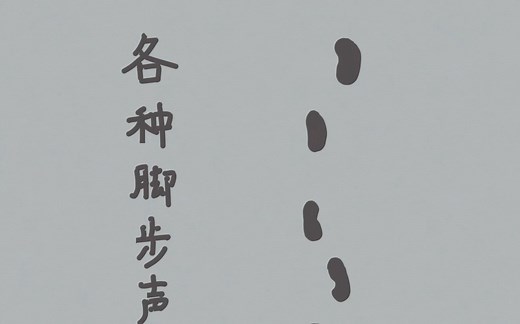 各种脚步声